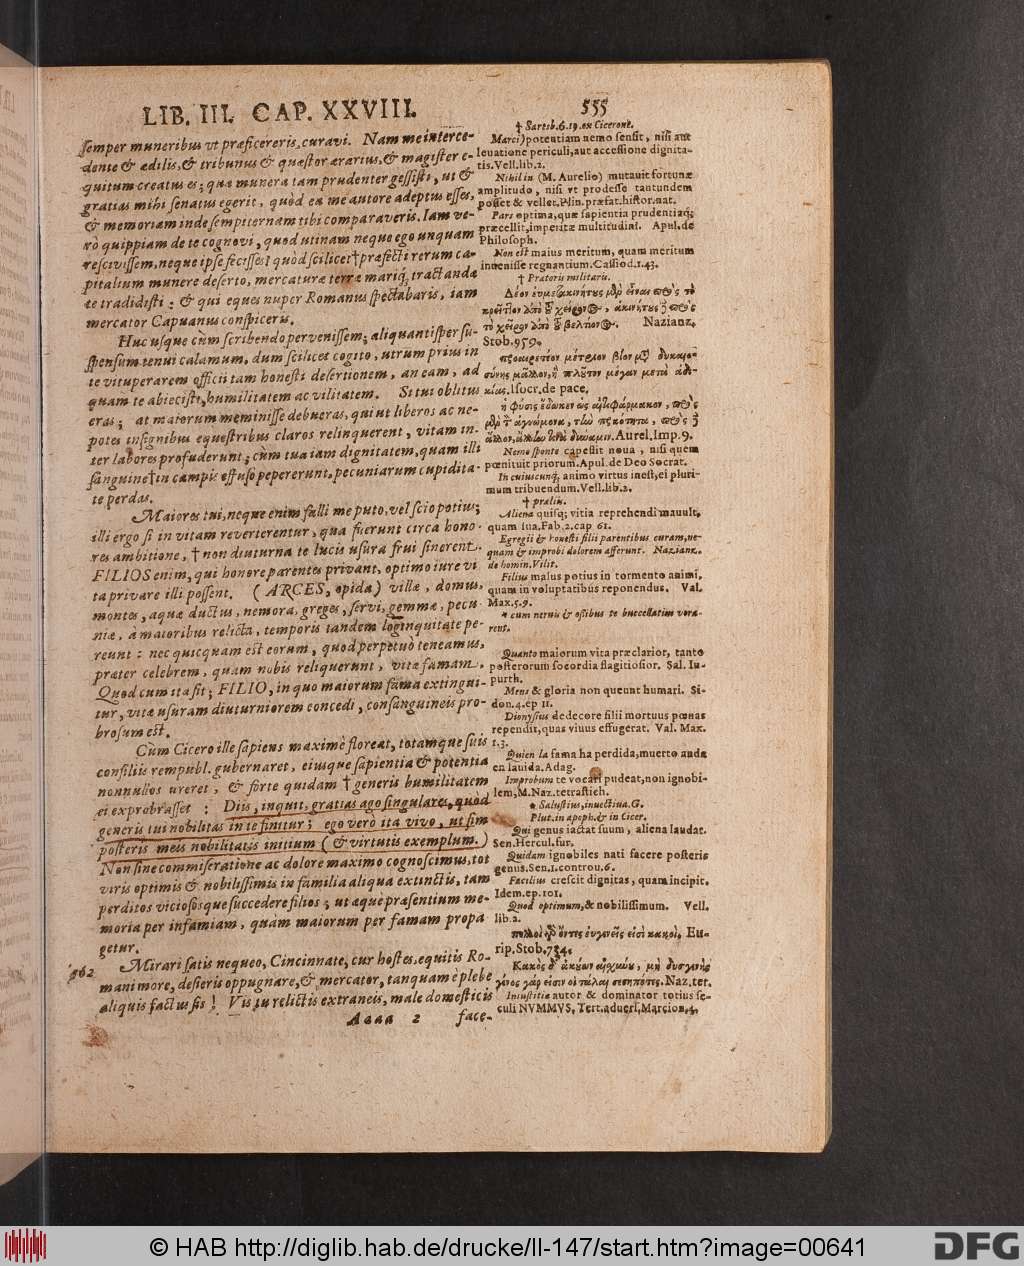 LIB. III. CAP. XXVIII. 555
semper muneribus ut præficereris, curavi. Nam me interce-
dente & ædilis, & tribunus & quæstor ærarius, & magister e-
quitum creatus es; quæ munera tam prudenter gessisti, ut &
gratias mihi senatus egerit, quòd ea me autore adeptus esses,
& memoriam inde sempiternam tibi comparaveris. Iam ve-
rò quippiam de te cognovi, quod utinam neque ego unquam
rescivissem, neque ipse fecisses! quòd scilicet † præfecti rerum ca-
pitalium munere deserto, mercaturæ terra mariq; tractandæ
te tradidisti: & qui eques nuper Romanus spectabaris, iam
mercator Capuanus conspiceris.
Huc usque cùm scribendo pervenissem; aliquantisper su-
spensum tenui calamum, dum scilicet cogito, utrum prius in
te vituperarem officii tam honesti desertionem, an eam, ad
quam te abiecisti, humilitatem ac vilitatem. Si tui oblitus
eras; at maiorum meminisse debueras, qui ut liberos ac ne-
potes insignibus equestribus claros relinquerent, vitam in-
ter labores profuderunt; cum tu a iam dignitatem, quam illi
sanguine † in campis effuso pepererunt, pecuniarum cupidita-
te perdas.
Maiores tui, neque enim falli me puto, vel scio potius;
illi ergo si in vitam reverterentur, qua fuerunt circa hono-
res ambitione, † non diuturna te lucis usura frui sinerent.
FILIOS enim, qui honore parentes privant, optimo iure vi
ta privare illi possent. (ARCES, opida) villæ, domus,
montes, aquæ ductus, nemora, greges, servi, gemmæ, pecu-
niæ, à maioribus relicta, temporis tandem longinquitate pe-
reunt: nec quicquam est eorum, quod perpetuò teneamus,
præter celebrem, quam nobis reliquerunt, vitæ famam.
Quod cum ita sit; FILIO, in quo maiorum fama extingui-
tur, vitæ usuram diuturniorem concedi, consanguineis pro-
brosum est.
Cùm Cicero ille sapiens maximè floreat, totamque suis
consiliis rempubl. gubernaret, eiusque sapientia & potentia
nonnullos ureret, & fortè quidam † generis humilitatem
ei exprobrasset: Diis, inquit, gratias ago singulares, quòd
generis tui nobilitas in te finitur; ego verò ita vivo, ut sim
posteris meis nobilitatis initium (& virtutis exemplum.)
Non sine commiseratione ac dolore maximo cognoscimus, tot
viris optimis & nobilissimis in familia aliqua extinctis, tam
perditos viciosósque succedere filios; ut aquè præsentium me-
moria per infamiam, quàm maiorum per famam propa
getur.
Mirari satis nequeo, Cincinnate, cur hostes, equitis Ro-
mani more, desieris oppugnare, & mercator, tanquam è plebe
aliquis factus sis! Vis tu relictis extraneis, male domesticis
Aaaa 2 face-
† Saresb. 6. 19. ex Cicerone.
Marci) potentiam nemo sensit, nisi aut
leuatione periculi, aut accessione dignita-
tis. Vell. lib. 2.
Nihil in (M. Aurelio) mutauit fortunæ
amplitudo, nisi vt prodesse tantundem
posset & vellet. Plin. præfat. histor. nat.
Pars optima, quæ sapientia prudentiaq;
præcellit, imperitæ multitudini. Apul. de
Philosoph.
Non est maius meritum, quam meritum
inuenisse regnantium. Cassiod. 1. 43.
† Pratorii militaris.
Nazianz.
Stob. 959.
Isocr. de pace.
Aurel. Imp. 9.
Nemo sponte capessit noua, nisi quem
pœnituit priorum. Apul. de Deo Socrat.
In cuiuscunq; animo virtus inest, ei pluri-
mum tribuendum. Vell. lib. 2.
† prælin.
Aliena quisq; vitia reprehendi mauult,
quam sua. Fab. 2. cap 61.
Egregii & honesti filii parentibus curam, ne-
quam & improbi dolorem afferunt. Nazianz.
de homin. Vilit.
Filius malus potius in tormento animi,
quam in voluptatibus reponendus. Val.
Max. 5. 9.
* cum neruis & ossibus te buccellatim vora-
rent.
Quanto maiorum vita præclarior, tanto
posterorum socordia flagitiosior. Sal. Iu-
gurth.
Mens & gloria non queunt humari. Si-
don. 4. ep 11.
Dionysius dedecore filii mortuus pœnas
rependit, quas viuus effugerat. Val. Max.
1. 3.
Quien la fama ha perdida, muerto anda
en lauida. Adag.
Improbum te vocari pudeat, non ignobi-
lem, M. Naz. tetrastich.
* Salustius, inuectiua. G.
Plut. in apoph. & in Cicer.
Qui genus iactat suum, aliena laudat.
Sen. Hercul. fur.
Quidam ignobiles nati facere posteris
genus. Sen. 1. controu. 6.
Facilius crescit dignitas, quam incipit.
Idem. ep. 101.
Quod optimum, & nobilissimum. Vell.
lib. 2.
Eu-
rip. Stob. 734.
Naz. tet.
Iniustitiæ autor & dominator totius se-
culi NVMMVS, Tert. aduers. Marcion. 4.
© HAB http://diglib.hab.de/drucke/ll-147/start.htm?image=00641
DFG